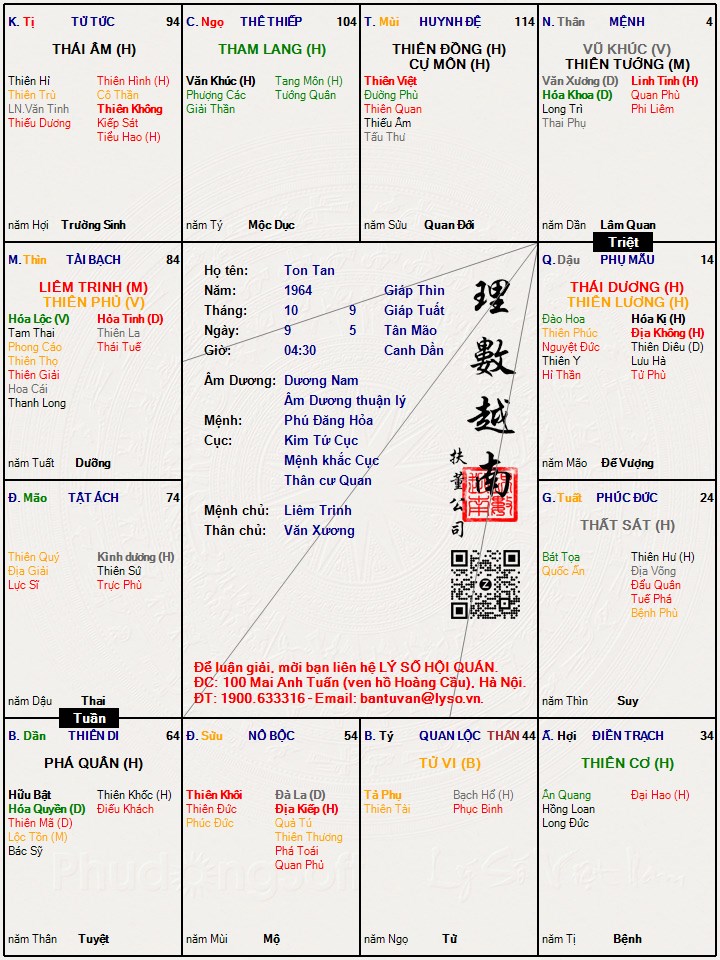 K. Tị TỬ TỨC 94
THÁI ÂM (H)
Thiên Hỉ Thiên Hình (H)
Thiên Trù Cô Thần
LN.Văn Tinh Thiên Không
Thiếu Dương Kiếp Sát
Tiểu Hao (H)
năm Hợi Trường Sinh
C. Ngọ THÊ THIẾP 104
THAM LANG (H)
Văn Khúc (H) Tang Môn (H)
Phượng Các Tướng Quân
Giải Thần
năm Tý Mộc Dục
T. Mùi HUYNH ĐỆ 114
THIÊN ĐỒNG (H)
CỰ MÔN (H)
Thiên Việt
Đường Phù
Thiên Quan
Thiếu Âm
Tấu Thư
năm Sửu Quan Đới
N. Thân MỆNH 4
VŨ KHÚC (V)
THIÊN TƯỚNG (M)
Văn Xương (D) Linh Tinh (H)
Hóa Khoa (D) Quan Phù
Long Trì Phi Liêm
Thai Phụ
năm Dần Lâm Quan
Triệt
M. Thìn TÀI BẠCH 84
LIÊM TRINH (M)
THIÊN PHỦ (V)
Hóa Lộc (V) Hỏa Tinh (D)
Tam Thai Thiên La
Phong Cáo Thái Tuế
Thiên Thọ
Thiên Giải
Hoa Cái
Thanh Long
năm Tuất Dưỡng
Họ tên: Ton Tan
Năm: 1964 Giáp Thìn
Tháng: 10 9 Giáp Tuất
Ngày: 9 5 Tân Mão
Giờ: 04:30 Canh Dần
Âm Dương: Dương Nam
Âm Dương thuận lý
Mệnh: Phú Đăng Hỏa
Cục: Kim Tứ Cục
Mệnh khắc Cục
Thân cư Quan
Mệnh chủ: Liêm Trinh
Thân chủ: Văn Xương
理數越南
扶董公司
Để luận giải, mời bạn liên hệ LÝ SỐ HỘI QUÁN.
ĐC: 100 Mai Anh Tuấn (ven hồ Hoàng Cầu), Hà Nội.
ĐT: 1900.633316 - Email: bantuvan@lyso.vn.
Q. Dậu PHỤ MẪU 14
THÁI DƯƠNG (H)
THIÊN LƯƠNG (H)
Đào Hoa Hóa Kị (H)
Thiên Phúc Địa Không (H)
Nguyệt Đức Thiên Diêu (D)
Thiên Y Lưu Hà
Hỉ Thần Tử Phù
năm Mão Đế Vượng
Đ. Mão TẬT ÁCH 74
Thiên Quý Kình dương (H)
Địa Giải Thiên Sứ
Lực Sĩ Trực Phù
năm Dậu Thai
Tuần
G. Tuất PHÚC ĐỨC 24
THẤT SÁT (H)
Bát Tọa Thiên Hư (H)
Quốc Ấn Địa Võng
Đẩu Quân
Tuế Phá
Bệnh Phù
năm Thìn Suy
B. Dần THIÊN DI 64
PHÁ QUÂN (H)
Hữu Bật Thiên Khốc (H)
Hóa Quyền (D) Điếu Khách
Thiên Mã (D)
Lộc Tồn (M)
Bác Sỹ
năm Thân Tuyệt
Đ. Sửu NÔ BỘC 54
Thiên Khôi Đà La (D)
Thiên Đức Địa Kiếp (H)
Phúc Đức Quả Tú
Thiên Thương
Phá Toái
Quan Phủ
năm Mùi Mộ
B. Tý QUAN LỘC THÂN 44
TỬ VI (B)
Tả Phụ Bạch Hổ (H)
Thiên Tài Phục Binh
năm Ngọ Tử
Ấ. Hợi ĐIỀN TRẠCH 34
THIÊN CƠ (H)
Ân Quang Đại Hao (H)
Hồng Loan
Long Đức
năm Tị Bệnh